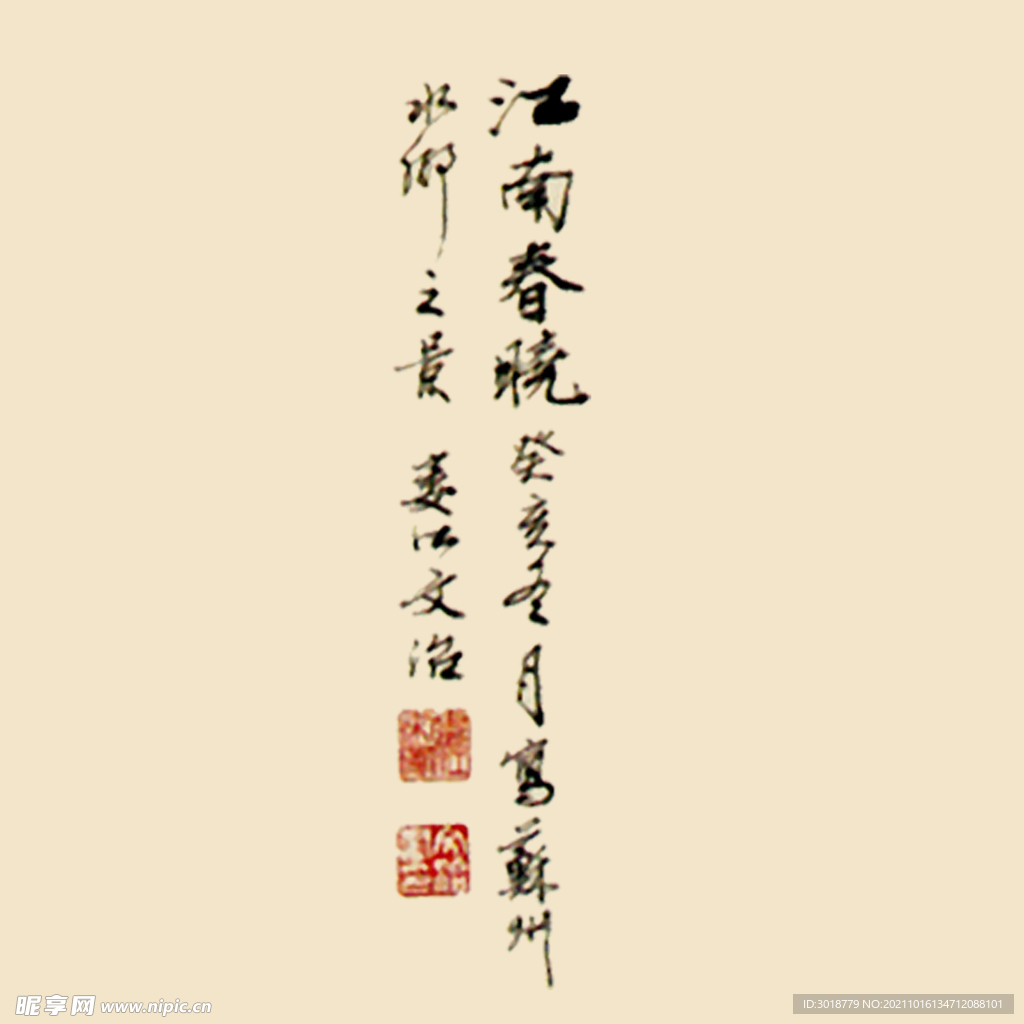 江南春曉癸亥冬月寫蘇州
水鄉之景 婁江文治
昵享网 www.nipic.cn
ID:3018779 NO:20211016134712088101